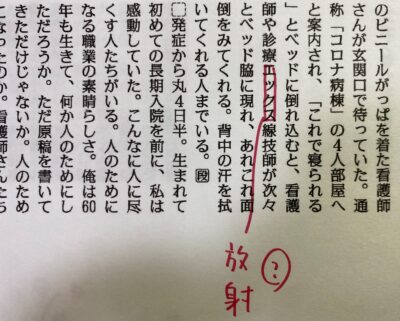 のビニールがっぱを着た看護師
さんが玄関口で待っていた。通
称「コロナ病棟」の4人部屋へ
と案内され、「これで寝られる
」とベッドに倒れ込むと、看護
師や診療エックス線技師が次々
とベッド脇に現れ、あれこれ面
倒をみてくれる。背中の汗を拭
いてくれる人までいる。段
発症から丸4日半。生まれて
初めての長期入院を前に、私は
感動していた。こんなに人に尽
くす人たちがいる。人のために
なる職業の素晴らしさ。俺は60
年も生きて、何か人のためにし
ただろうか。ただ原稿を書いて
きただけじゃないか。人のため
になったのか。看護師さんたち
?
放射